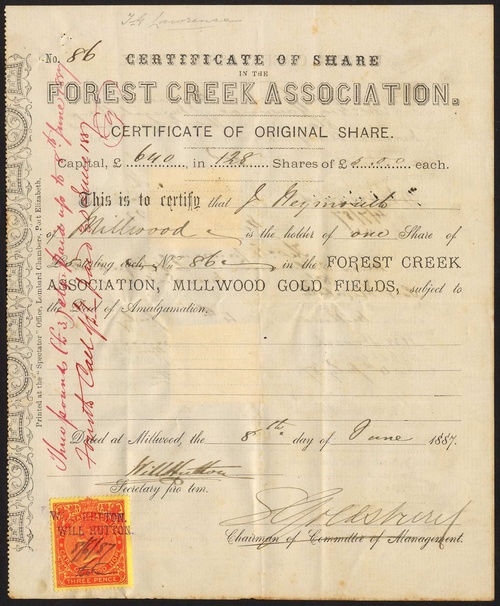 T. G. Lawrance
No. 86
CERTIFICATE OF SHARE
IN THE
FOREST CREEK ASSOCIATION.
CERTIFICATE OF ORIGINAL SHARE.
Capital, £ 640 in 128 Shares of £ 5.0.0 each.
This is to certify that J. Weymouth
of Millwood is the holder of one Share of
£5 sterling, each, No. 86 in the FOREST CREEK
ASSOCIATION, MILLWOOD GOLD FIELDS, subject to
the Deed of Amalgamation.
Dated at Millwood, the 8th day of June 1887.
Will Hutton
Secretary pro tem.
Chairman of Committee of Management.
WILL HUTTON.
WILL HUTTON.
THREE PENCE
Printed at the "Spectator" Office, Lombard Chambers, Port Elizabeth.
Three pounds paid up to June 1887
Fourth Call